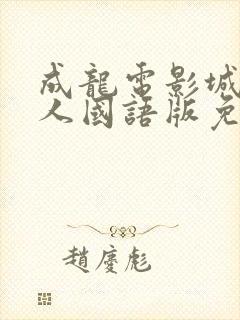 成龍電影城
人國語版免
趙慶彪